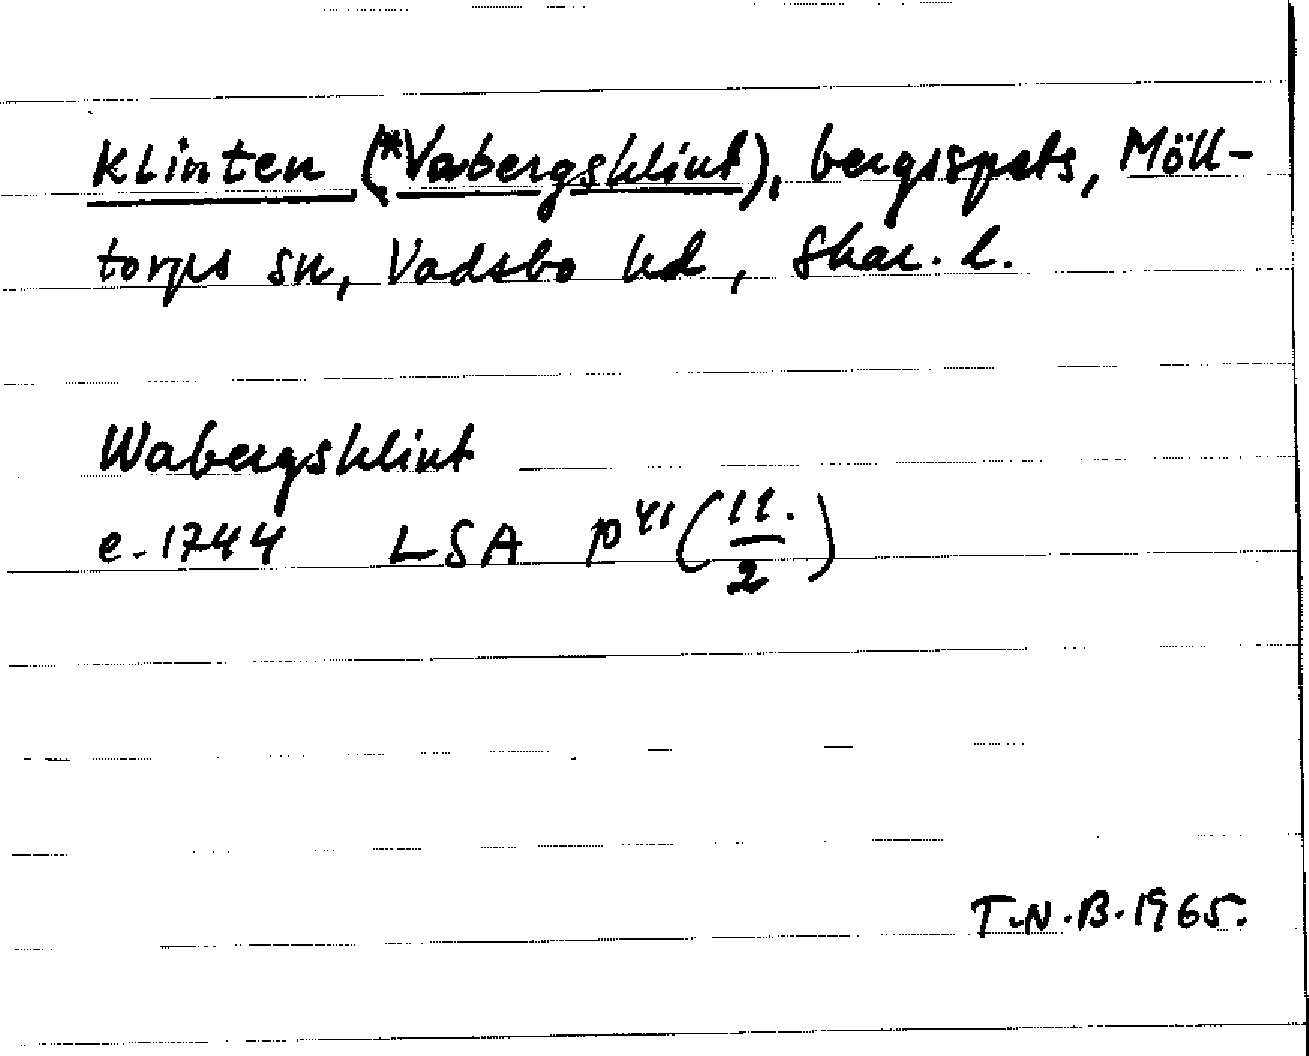 Klinten (*Vabergsklint), bergsspets, Möll-
torps sn, Vadsbo hd, Skar. l.
Wabergsklint
e. 1744 LSA P 41 (11./2)
T.N.B. 1965.